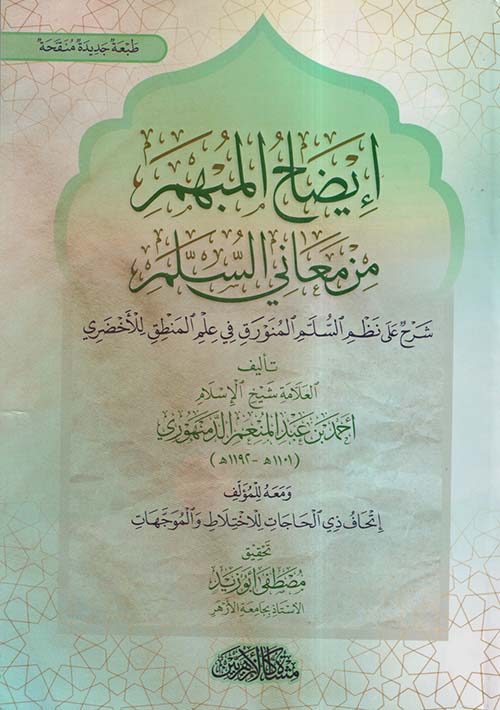 طَبْعَةٌ جَدِيدَةٌ مُنَقَّحَةٌ
إِيضَاحُ المُبْهَمِ
مِنْ مَعَانِي السُّلَّمِ
شَرْحٌ عَلَى نَظْمِ السُّلَّمِ المُنَوْرَقِ فِي عِلْمِ المَنْطِقِ لِلْأَخْضَرِي
تأليف
العَلَّامَة شَيْخ الإِسْلَام
أَحْمَد بْن عَبْد المُنْعِم الدَّمَنْهُورِي
(١١٠١ه - ١١٩٢ه)
وَمَعَهُ لِلْمُؤَلِّفِ
إِتْحَافُ ذِي الحَاجَاتِ لِلِاخْتِلَاطِ وَالمُوَجَّهَاتِ
تحقيق
مُصْطَفَى أَبُو زَيْد
الأستاذ بجامعة الأزهر